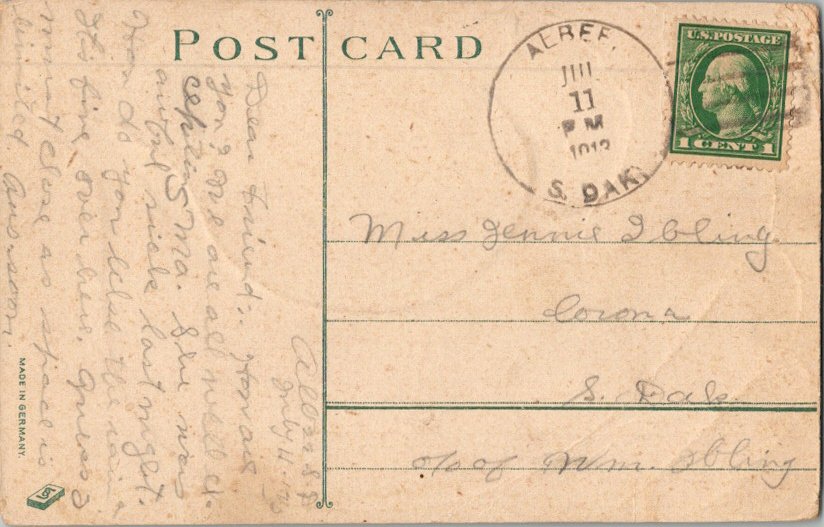 POST CARD
ALBEE,
JUL
11
PM
S. DAK.
U.S. POSTAGE
1 CENT 1
Miss Jennie Ibling
Corona
S. Dak.
c/o of Wm. Ibling
Albee S.D.
July 11-
Dear Friend:. How are
you? We are all well ex-
cepting Ma. She was
awful sick last night.
How do you like the rain
It's fine over here. Guess I
must close as space is
limited. Ans. soon.
MADE IN GERMANY.